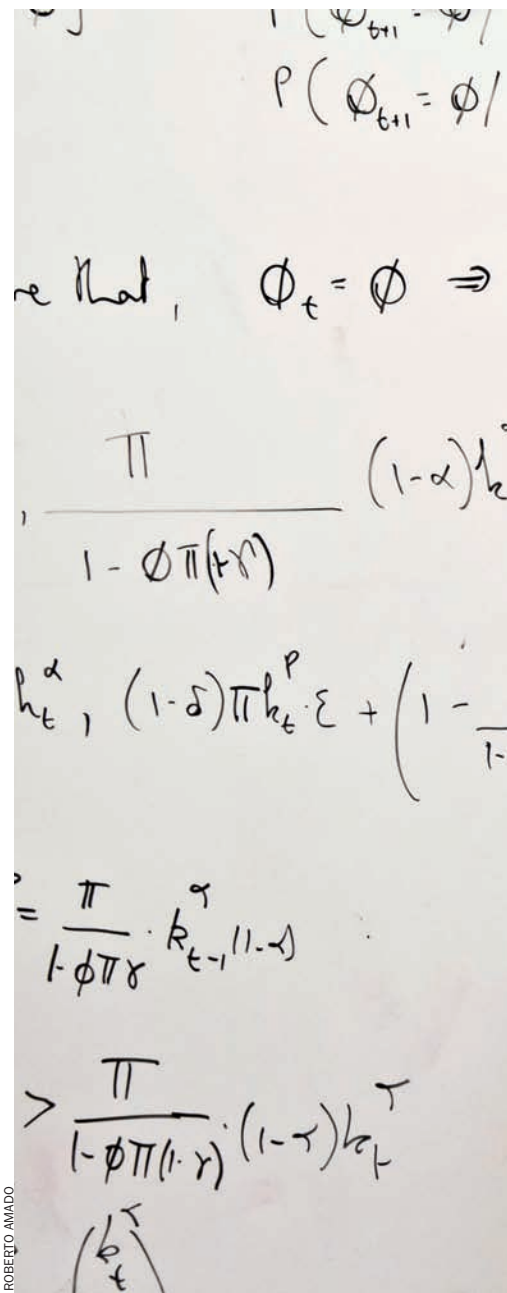 P(Φt+1 = Φ/
re that, Φt = Φ ⇒
, π / (1 - Φπ(1+γ)) (1-α)k
kt^α, (1-δ)πkt^P·ε + (1 - / 1-
= π / (1-Φπγ) · kt-1^α (1-α)
> π / (1-Φπ(1-γ)) · (1-α)kt^α
(kt^α)
ROBERTO AMADO